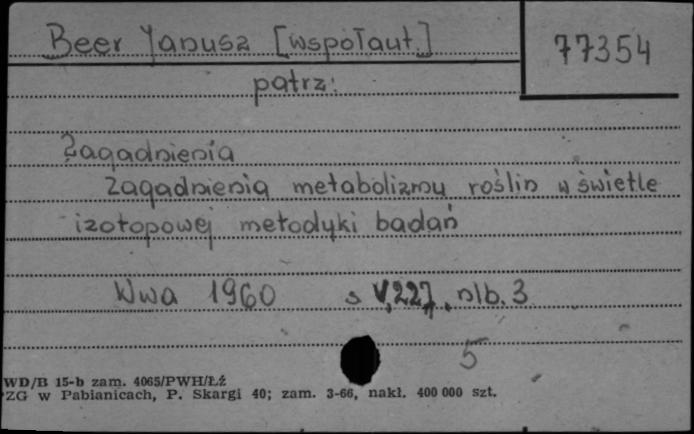 Beer Janusz [współaut.]
77354
patrz:
Zagadnienia
Zagadnienia metabolizmu roślin w świetle
izotopowej metodyki badań
Wwa 1960 s V, 227, nlb. 3
5
WD/B 15-b zam. 4065/PWH/ŁŹ
ZG w Pabianicach, P. Skargi 40; zam. 3-66, nakł. 400 000 szt.